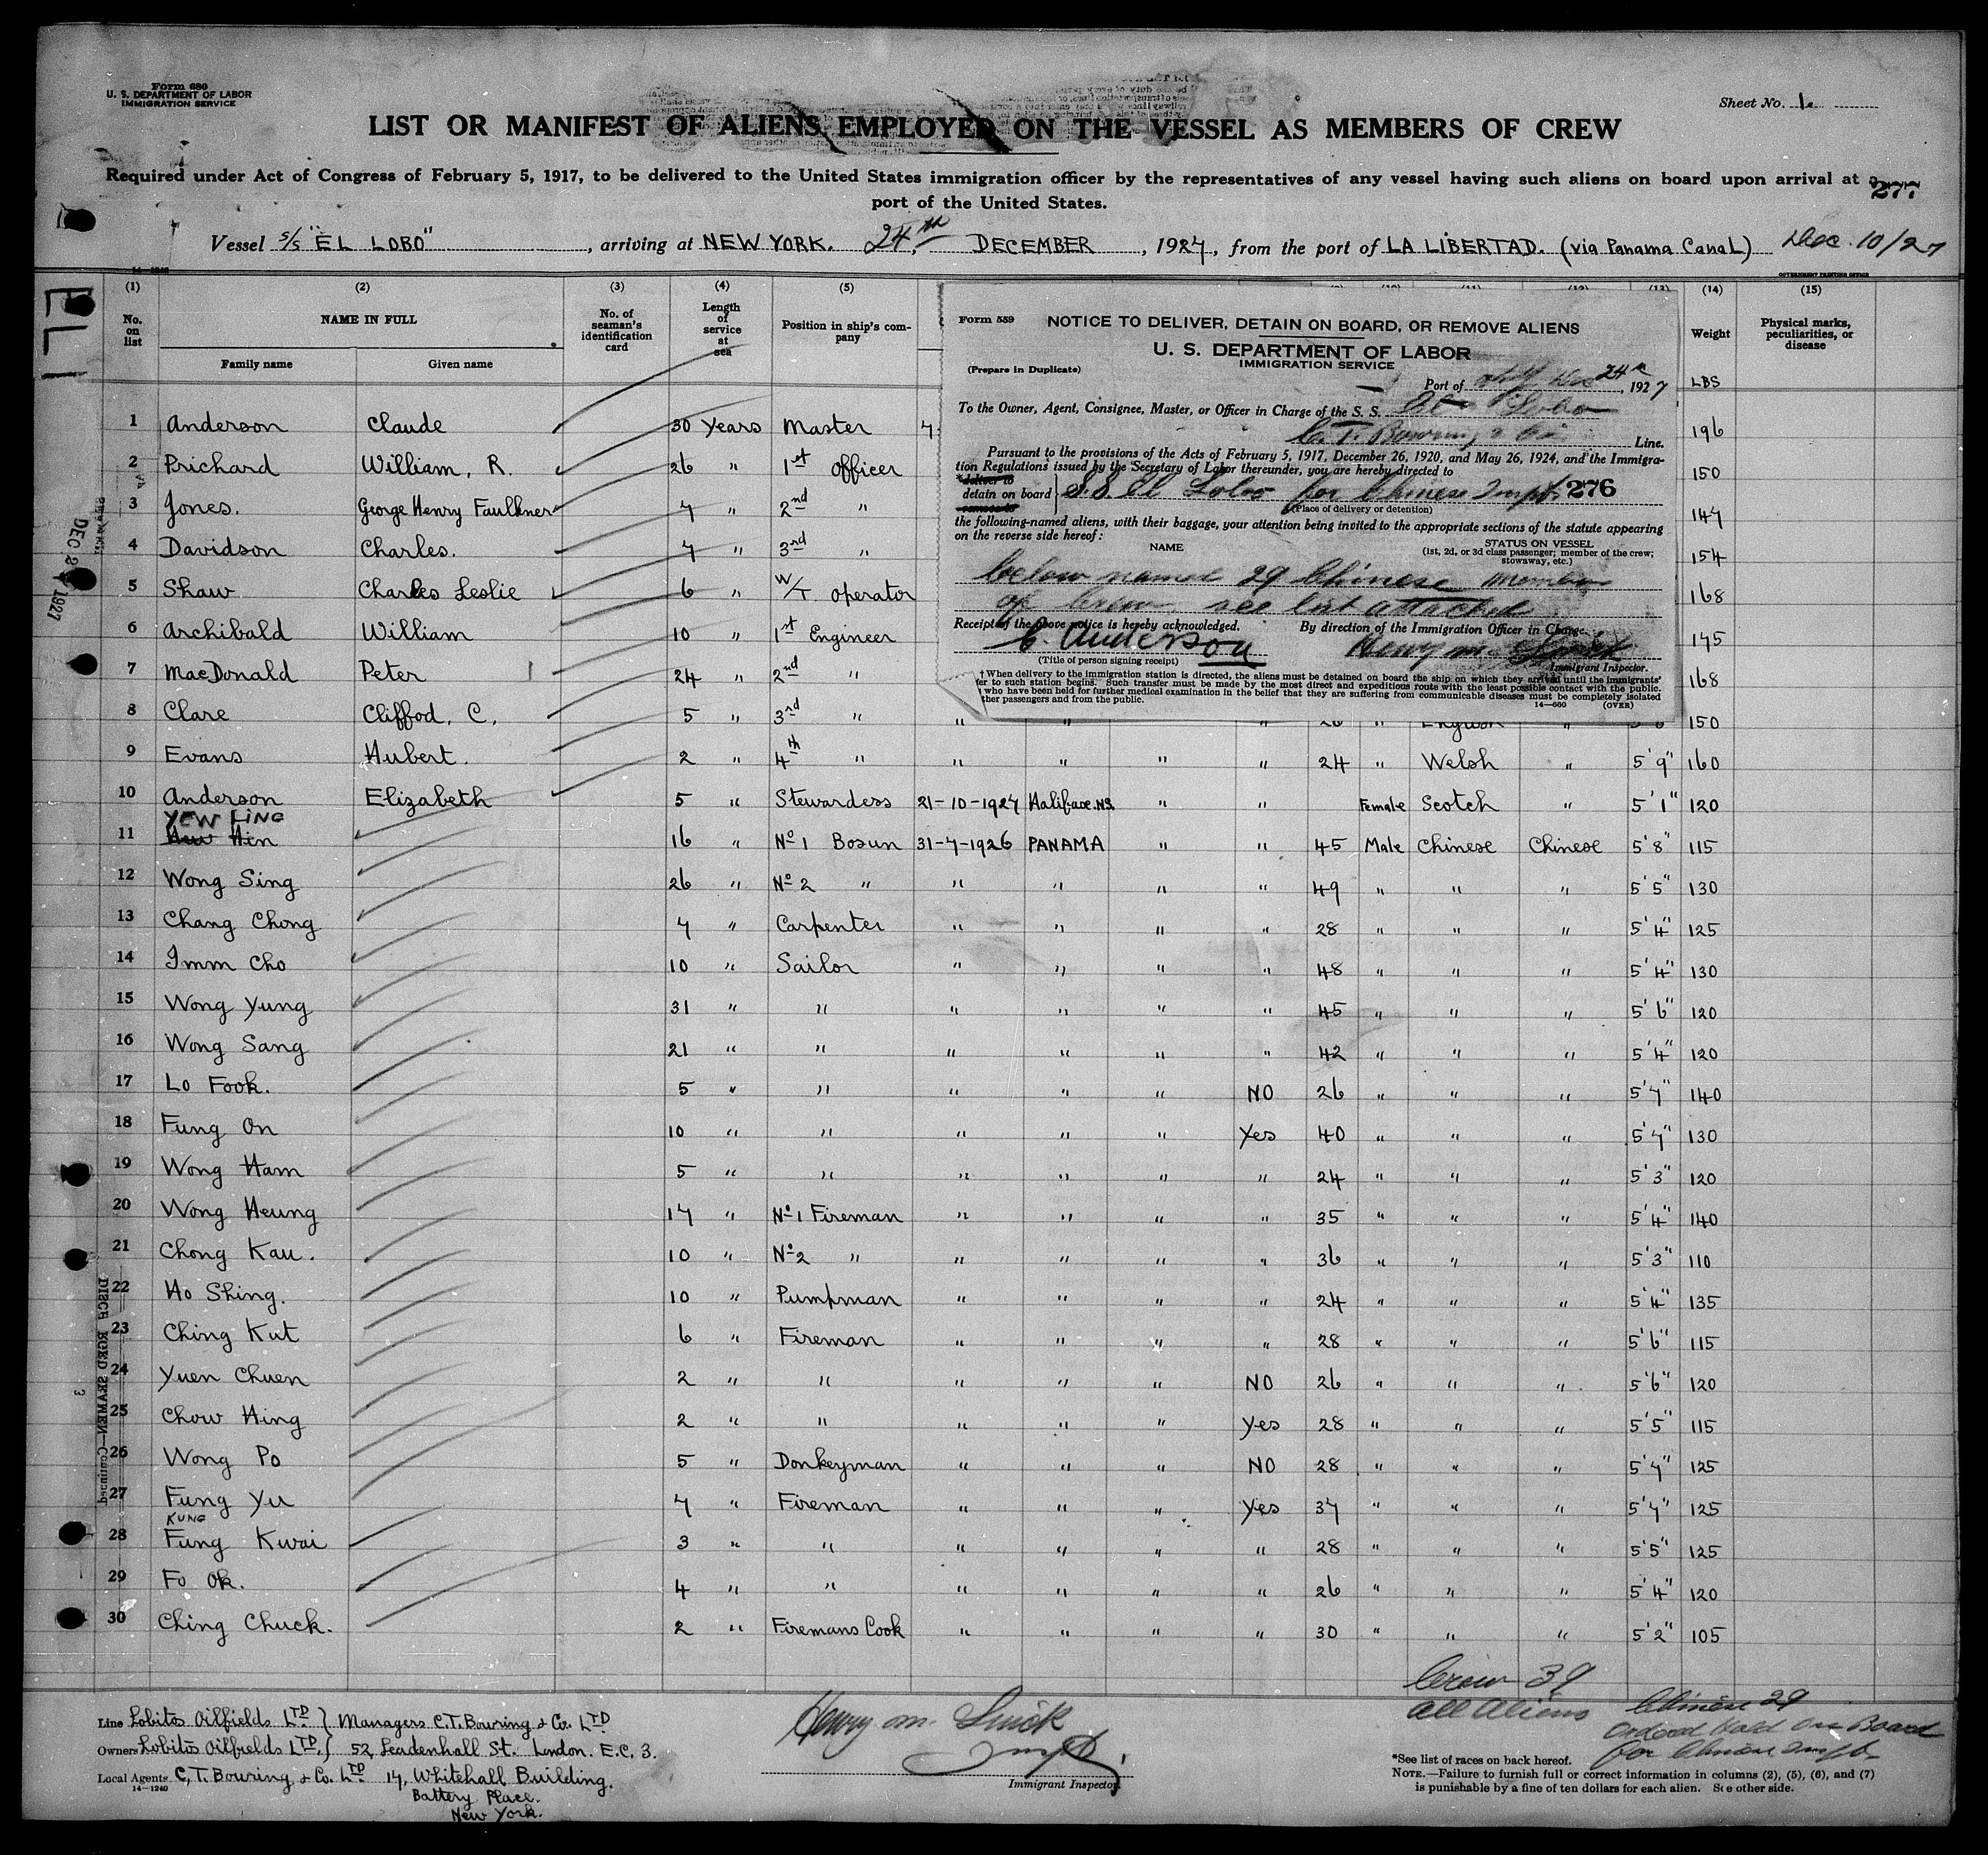 Form 680
U. S. DEPARTMENT OF LABOR
IMMIGRATION SERVICE
Sheet No. 1.
LIST OR MANIFEST OF ALIENS EMPLOYED ON THE VESSEL AS MEMBERS OF CREW
Required under Act of Congress of February 5, 1917, to be delivered to the United States immigration officer by the representatives of any vessel having such aliens on board upon arrival at a
port of the United States.
277
Vessel S/S "EL LOBO", arriving at NEW YORK. 24th DECEMBER, 1927, from the port of LA LIBERTAD. (via Panama Canal) Dec. 10/27
14-1240
GOVERNMENT PRINTING OFFICE
(1) (2) (3) (4) (5) (14) (15)
No. on list
NAME IN FULL
Family name Given name
No. of seaman's identification card
Length of service at sea
Position in ship's company
Weight
LBS
Physical marks, peculiarities, or disease
Form 559
NOTICE TO DELIVER, DETAIN ON BOARD, OR REMOVE ALIENS
U. S. DEPARTMENT OF LABOR
IMMIGRATION SERVICE
(Prepare in Duplicate)
Port of NY Dec 24th, 1927
To the Owner, Agent, Consignee, Master, or Officer in Charge of the S. S. El Lobo
C. T. Bowring & Co. Line.
Pursuant to the provisions of the Acts of February 5, 1917, December 26, 1920, and May 26, 1924, and the Immigra-
tion Regulations issued by the Secretary of Labor thereunder, you are hereby directed to
deliver to
detain on board S.S El Lobo for Chinese Inspt. 276
remove to
(Place of delivery or detention)
the following-named aliens, with their baggage, your attention being invited to the appropriate sections of the statute appearing
on the reverse side hereof:
NAME
STATUS ON VESSEL
(1st, 2d, or 3d class passenger; member of the crew;
stowaway, etc.)
below named 29 Chinese members
of crew see list attached
Receipt of the above notice is hereby acknowledged. By direction of the Immigration Officer in Charge.
C. Anderson Henry M.
(Title of person signing receipt) Immigrant Inspector.
† When delivery to the immigration station is directed, the aliens must be detained on board the ship on which they arrived until the immigrants'
er to such station begins. Such transfer must be made by the most direct and expeditious route with the least possible contact with the public.
who have been held for further medical examination in the belief that they are suffering from communicable diseases must be completely isolated
ther passengers and from the public.
14-660 (OVER)
1 Anderson Claude 30 Years Master 196
2 Prichard William, R. 26 " 1st Officer 150
3 Jones. George Henry Faulkner 7 " 2nd " 147
4 Davidson Charles. 7 " 3rd " 154
5 Shaw Charles Leslie 6 " W/T operator 168
6 Archibald William 10 " 1st Engineer 145
7 MacDonald Peter 24 " 2nd " 168
8 Clare Cliffod, C. 5 " 3rd " " 150
9 Evans Hubert. 2 " 4th " " " " " 24 " Welsh " 5'9" 160
10 Anderson Elizabeth 5 " Stewardess 21-10-1927 Halifax.NS. " " Female Scotch " 5'1" 120
YEW HING
11 Hin 16 " No 1 Bosun 31-7-1926 PANAMA " " 45 Male Chinese Chinese 5'8" 115
12 Wong Sing 26 " No 2 " " " " " 49 " " " 5'5" 130
13 Chang Chong 7 " Carpenter " " " " 28 " " " 5'4" 125
14 Imm Cho 10 " Sailor " " " " 48 " " " 5'4" 130
15 Wong Yung 31 " " " " " " 45 " " " 5'6" 120
16 Wong Sang 21 " " " " " " 42 " " " 5'4" 120
17 Lo Fook. 5 " " " " " NO 26 " " " 5'7" 140
18 Fung On 10 " " " " " Yes 40 " " " 5'7" 130
19 Wong Ham 5 " " " " " " 24 " " " 5'3" 120
20 Wong Heung 17 " No 1 Fireman " " " " 35 " " " 5'4" 140
21 Chong Kau. 10 " No 2 " " " " " 36 " " " 5'3" 110
22 Ho Shing. 10 " Pumpman " " " " 24 " " " 5'4" 135
23 Ching Kut 6 " Fireman " " " " 28 " " " 5'6" 115
24 Yuen Chuen 2 " " " " " NO 26 " " " 5'6" 120
25 Chow Hing 2 " " " " " Yes 28 " " " 5'5" 115
26 Wong Po 5 " Donkeyman " " " NO 28 " " " 5'7" 125
27 Fung Yu 7 " Fireman " " " Yes 37 " " " 5'7" 125
KUNG
28 Fung Kwai 3 " " " " " " 28 " " " 5'5" 125
29 Fo Ok. 4 " " " " " " 26 " " " 5'4" 120
30 Ching Chuck. 2 " Firemans Cook " " " " 30 " " " 5'2" 105
DEC 2 1927
DISCH RGED SEAMEN—Continued
3
Crew 39
All Aliens
Chinese 29
Ordered held on Board
for Chinese Inspt.
Line Lobitos Oilfields LTD } Managers C.T. Bowring & Co. LTD
Owners Lobitos Oilfields LTD. } 52, Leadenhall St. London. E.C. 3.
Local Agents C.T. Bowring & Co. LTD 17, Whitehall Building.
14-1240
Battery Place.
New York.
Henry M.
Inspt.
Immigrant Inspector.
*See list of races on back hereof.
NOTE.—Failure to furnish full or correct information in columns (2), (5), (6), and (7)
is punishable by a fine of ten dollars for each alien. See other side.